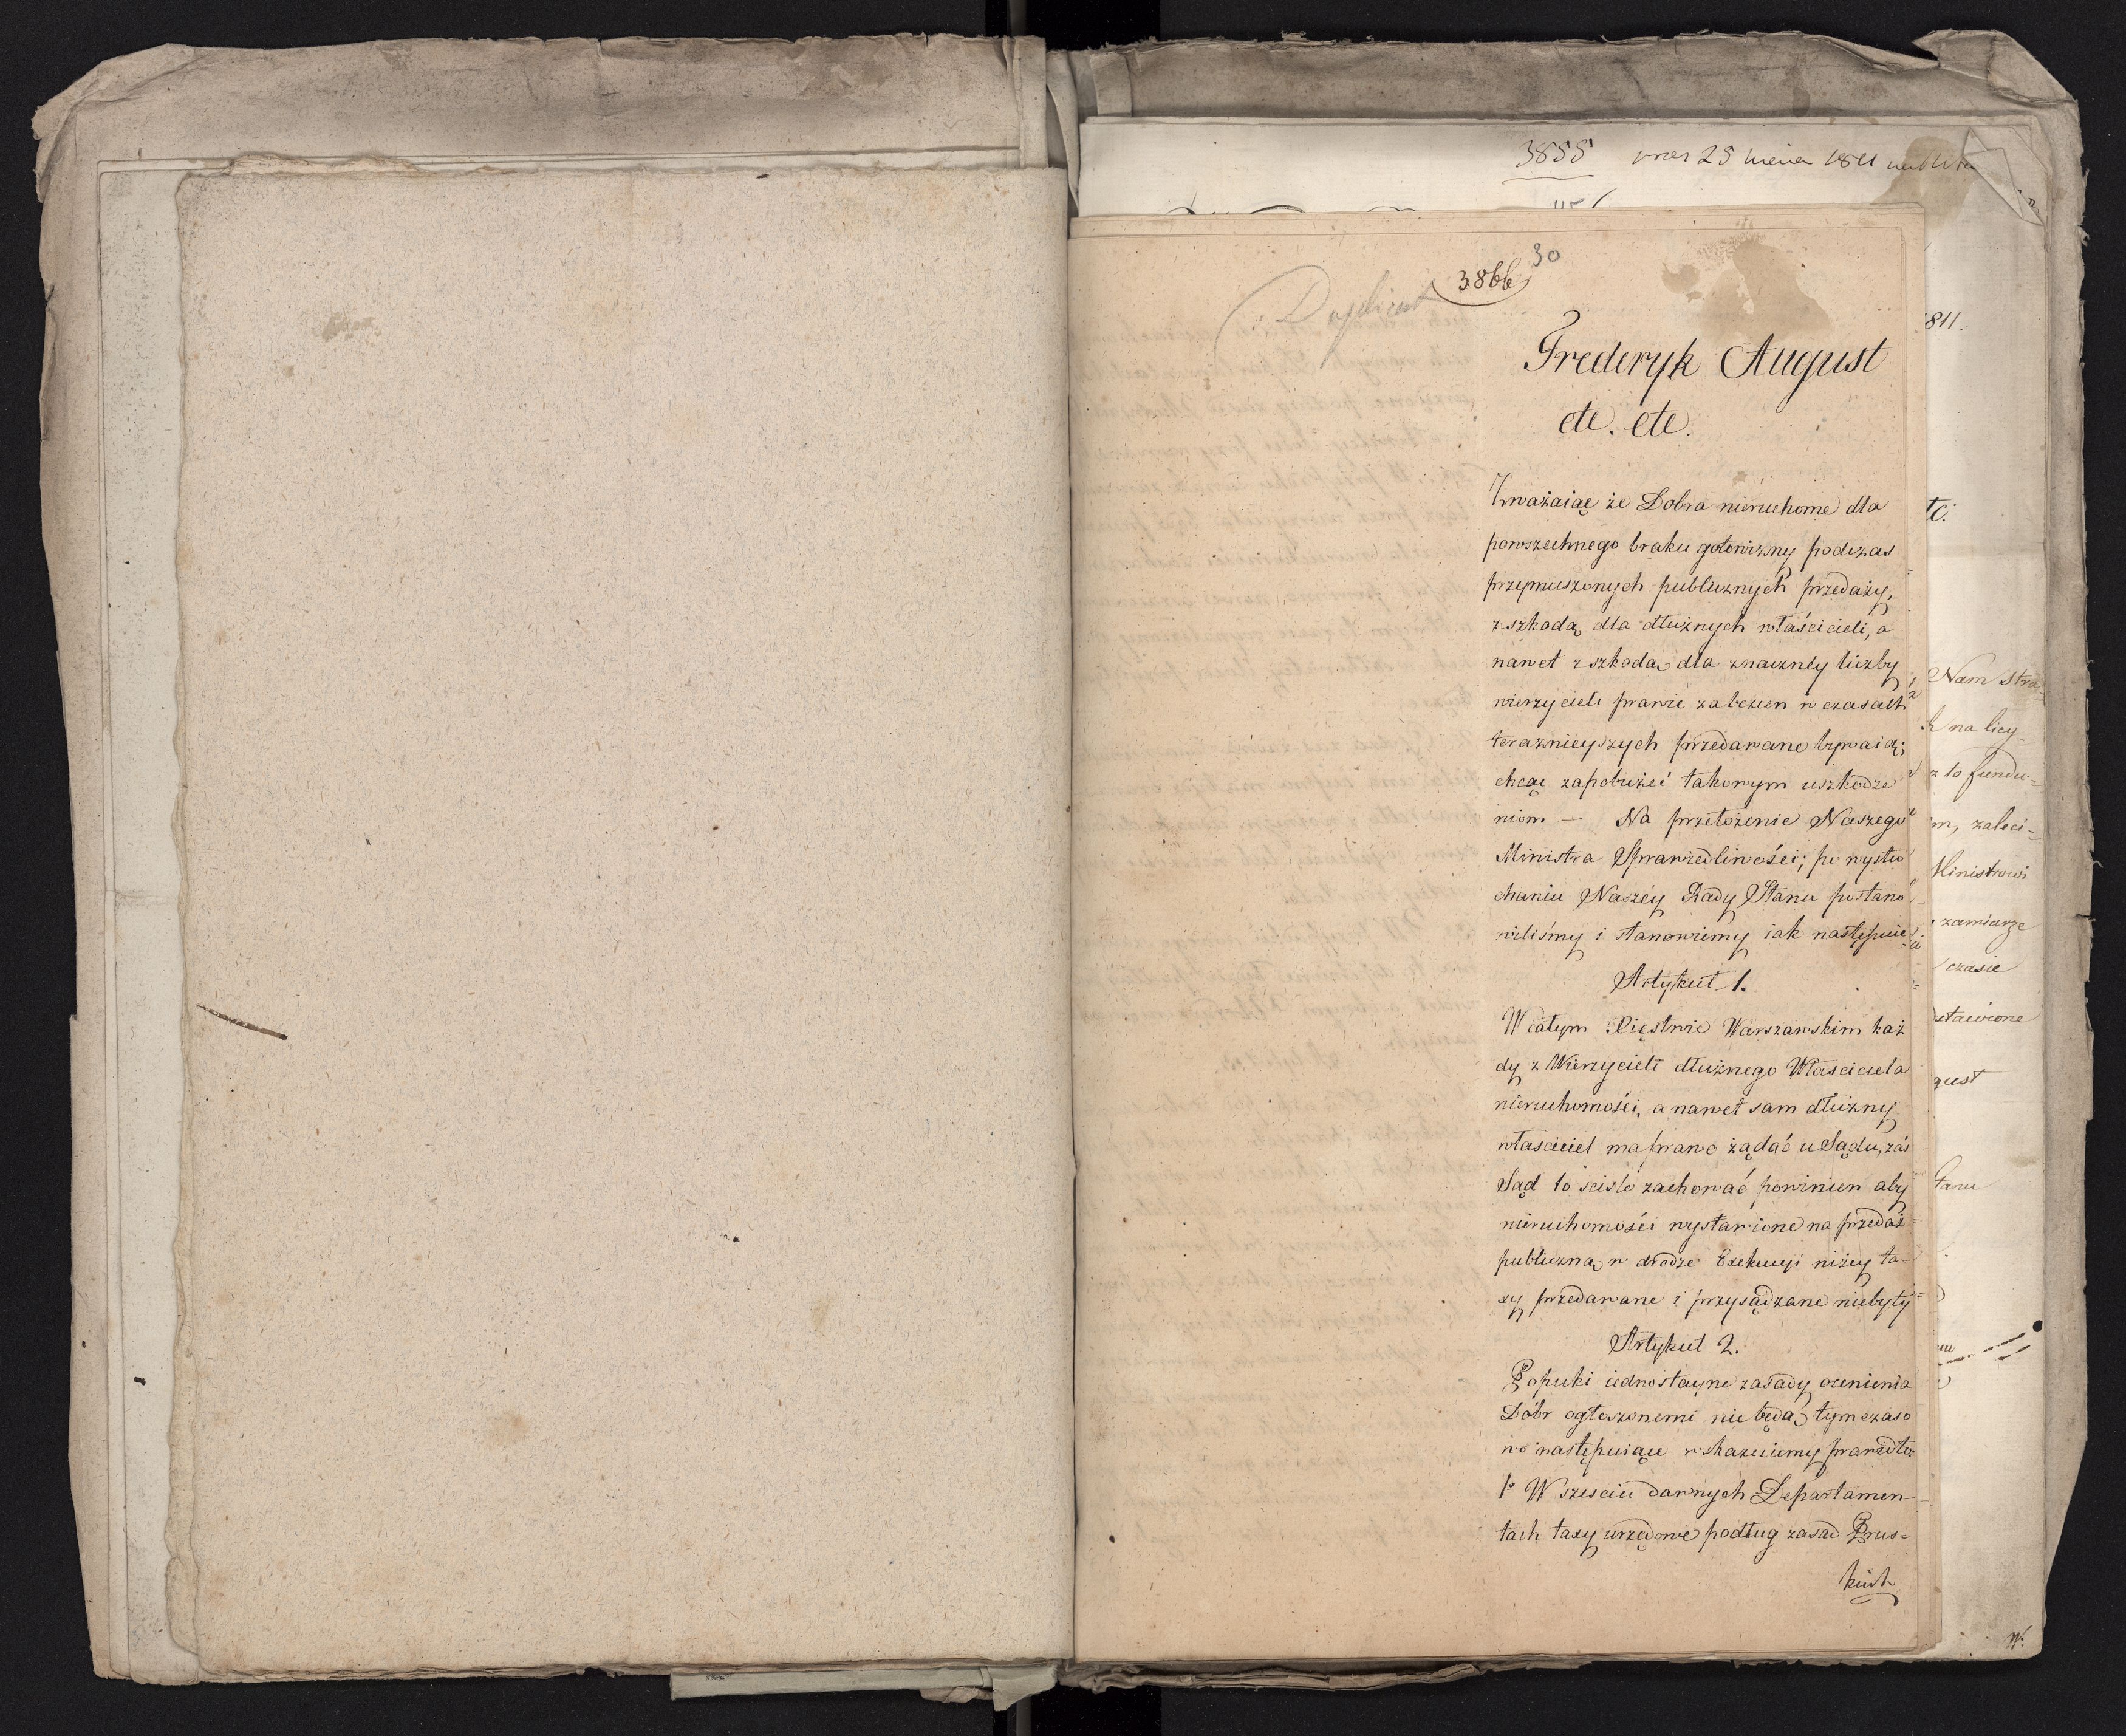 3855
25 1811
30
3866
Duplicat
Frederyk August
etc. etc.
Zważaiąc że Dobra nieruchome dla
powszechnego braku gotowizny podczas
przymuszonych publicznych przedaży,
z szkodą dla dłużnych właścicieli, a
nawet z szkodą dla znacznéy liczby
wierzycieli prawie za bezcen w czasach
teraznieyszych przedawane bywaią;
chcąc zapobieżeć takowym uszkodze
niom — Na przełożenie Naszego
Ministra Sprawiedliwości; po wysłu
chaniu Naszéy Rady Stanu postano
wiliśmy i stanowiemy iak następuie
Artykuł 1.
W całym Xięstwie Warszawskim każ
dy z Wierzycieli dłużnego Właściciela
nieruchomości, a nawet sam dłużny
właściciel ma prawo żądać u Sądu, zaś
Sąd to scisle zachować powinien aby
nieruchomości wystawione na przedaż
publiczną w drodze Exekucyi niżey ta-
xy przedawane i przysądzane niebyły
Artykuł 2.
Popuki iednostayne zasady ocenienia
Dóbr ogłoszonemi nie będą tymczaso
wo następuiące wskazuiemy prawidła
1o W szesciu dawnych Departamen-
tach taxy urzędowe podług zasad Prus-
kich
811.
tc.
Nam stra-
k na licy-
z to fundu-
m, zaleci-
Ministrowi
zamiarze
czasie
stawione
gust
Stanu
W.